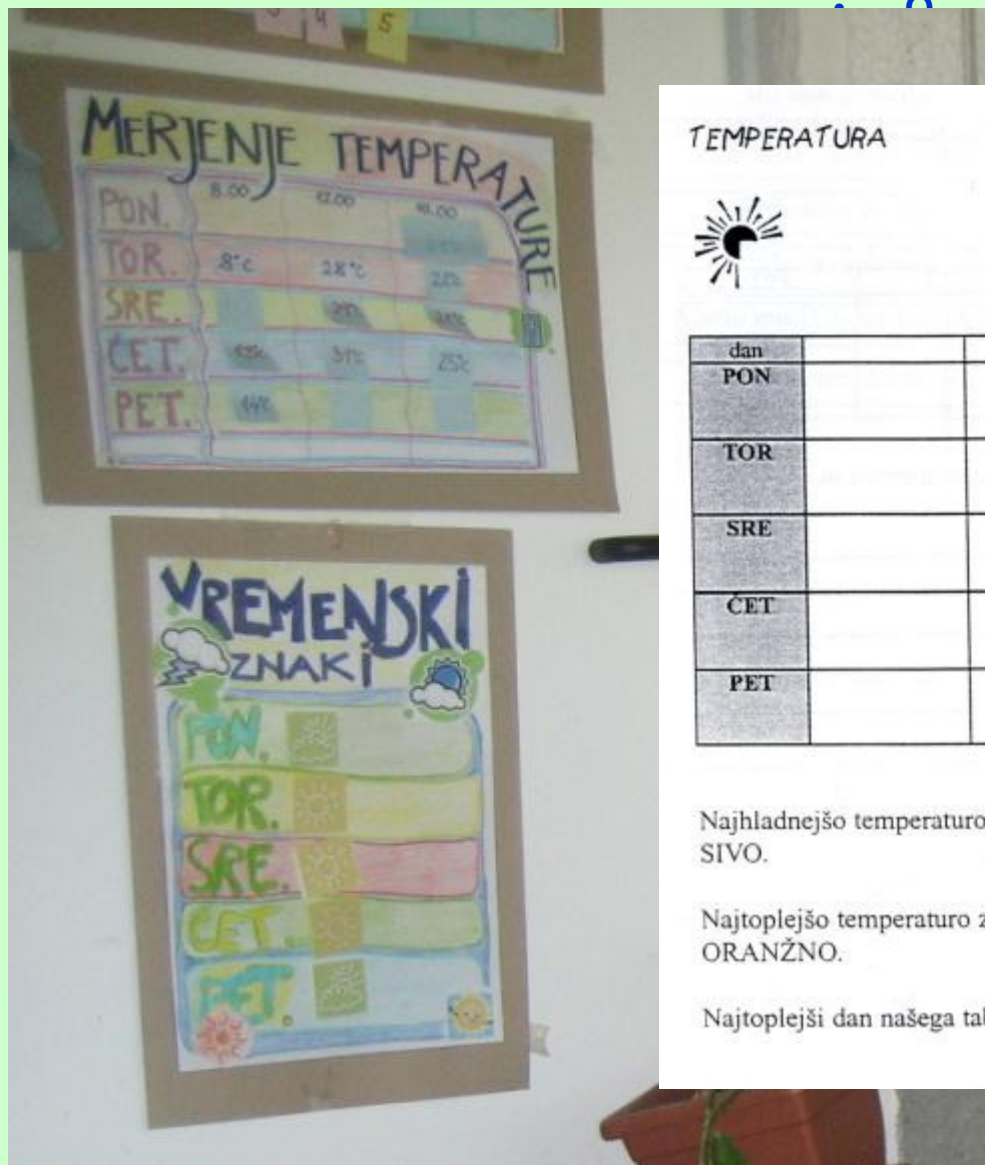 3 4 5
MERJENJE TEMPERATURE
8.00 12.00
PON.
TOR. 8°C 28°C
SRE.
ČET. 31°C 25°C
PET. 14°C
VREMENSKI
ZNAKI
PON.
TOR.
SRE.
ČET.
PET.
TEMPERATURA
dan
PON
TOR
SRE
ČET
PET
Najhladnejšo temperaturo
SIVO.
Najtoplejšo temperaturo z
ORANŽNO.
Najtoplejši dan našega